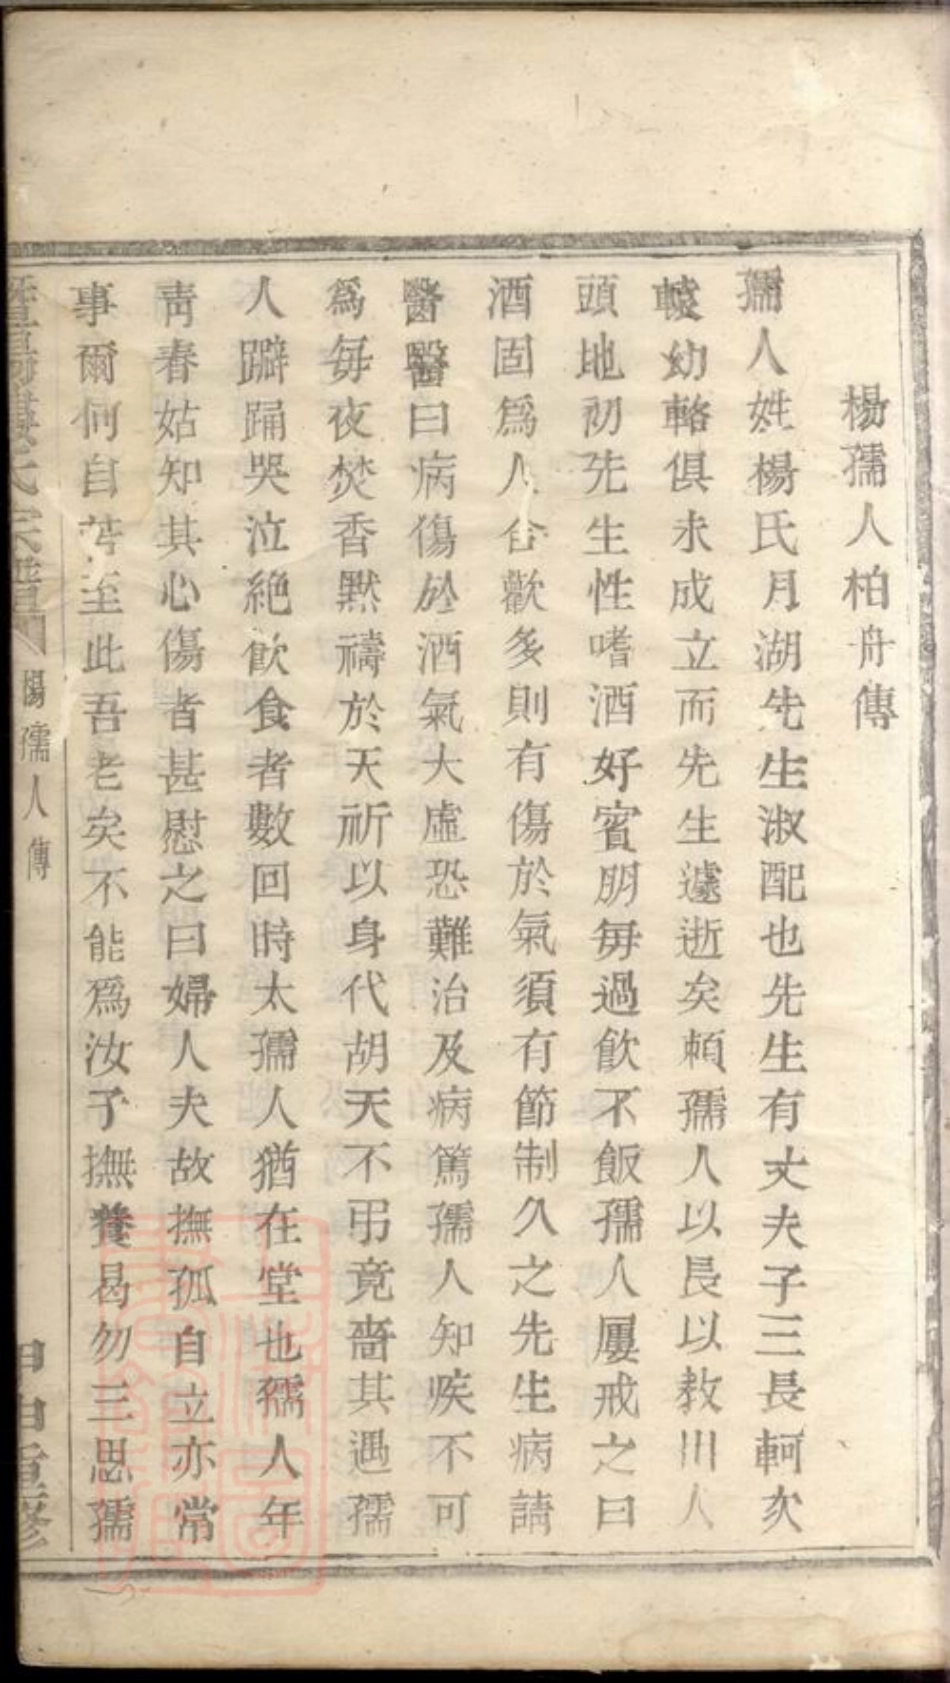 楊孺人柏舟傳
孺人姓楊氏月湖先生淑配也先生有丈夫子三長軻次
轅幼輅俱未成立而先生遽逝矣頼孺人以長以教川人
頭地初先生性嗜酒好賓朋每過飲不飯孺人屢戒之曰
酒固爲人合歡多則有傷於氣須有節制久之先生病請
醫醫曰病傷於酒氣大虛恐難治及病篤孺人知疾不可
爲每夜焚香默禱於天祈以身代胡天不弔竟嗇其遇孺
人躃踊哭泣絕飲食者數回時太孺人猶在堂也孺人年
靑春姑知其心傷者甚慰之曰婦人夫故撫孤自立亦常
事爾何自苦至此吾老矣不能爲汝子撫養曷勿三思孺
暨陽 氏宗譜
楊孺人傳
甲申重修